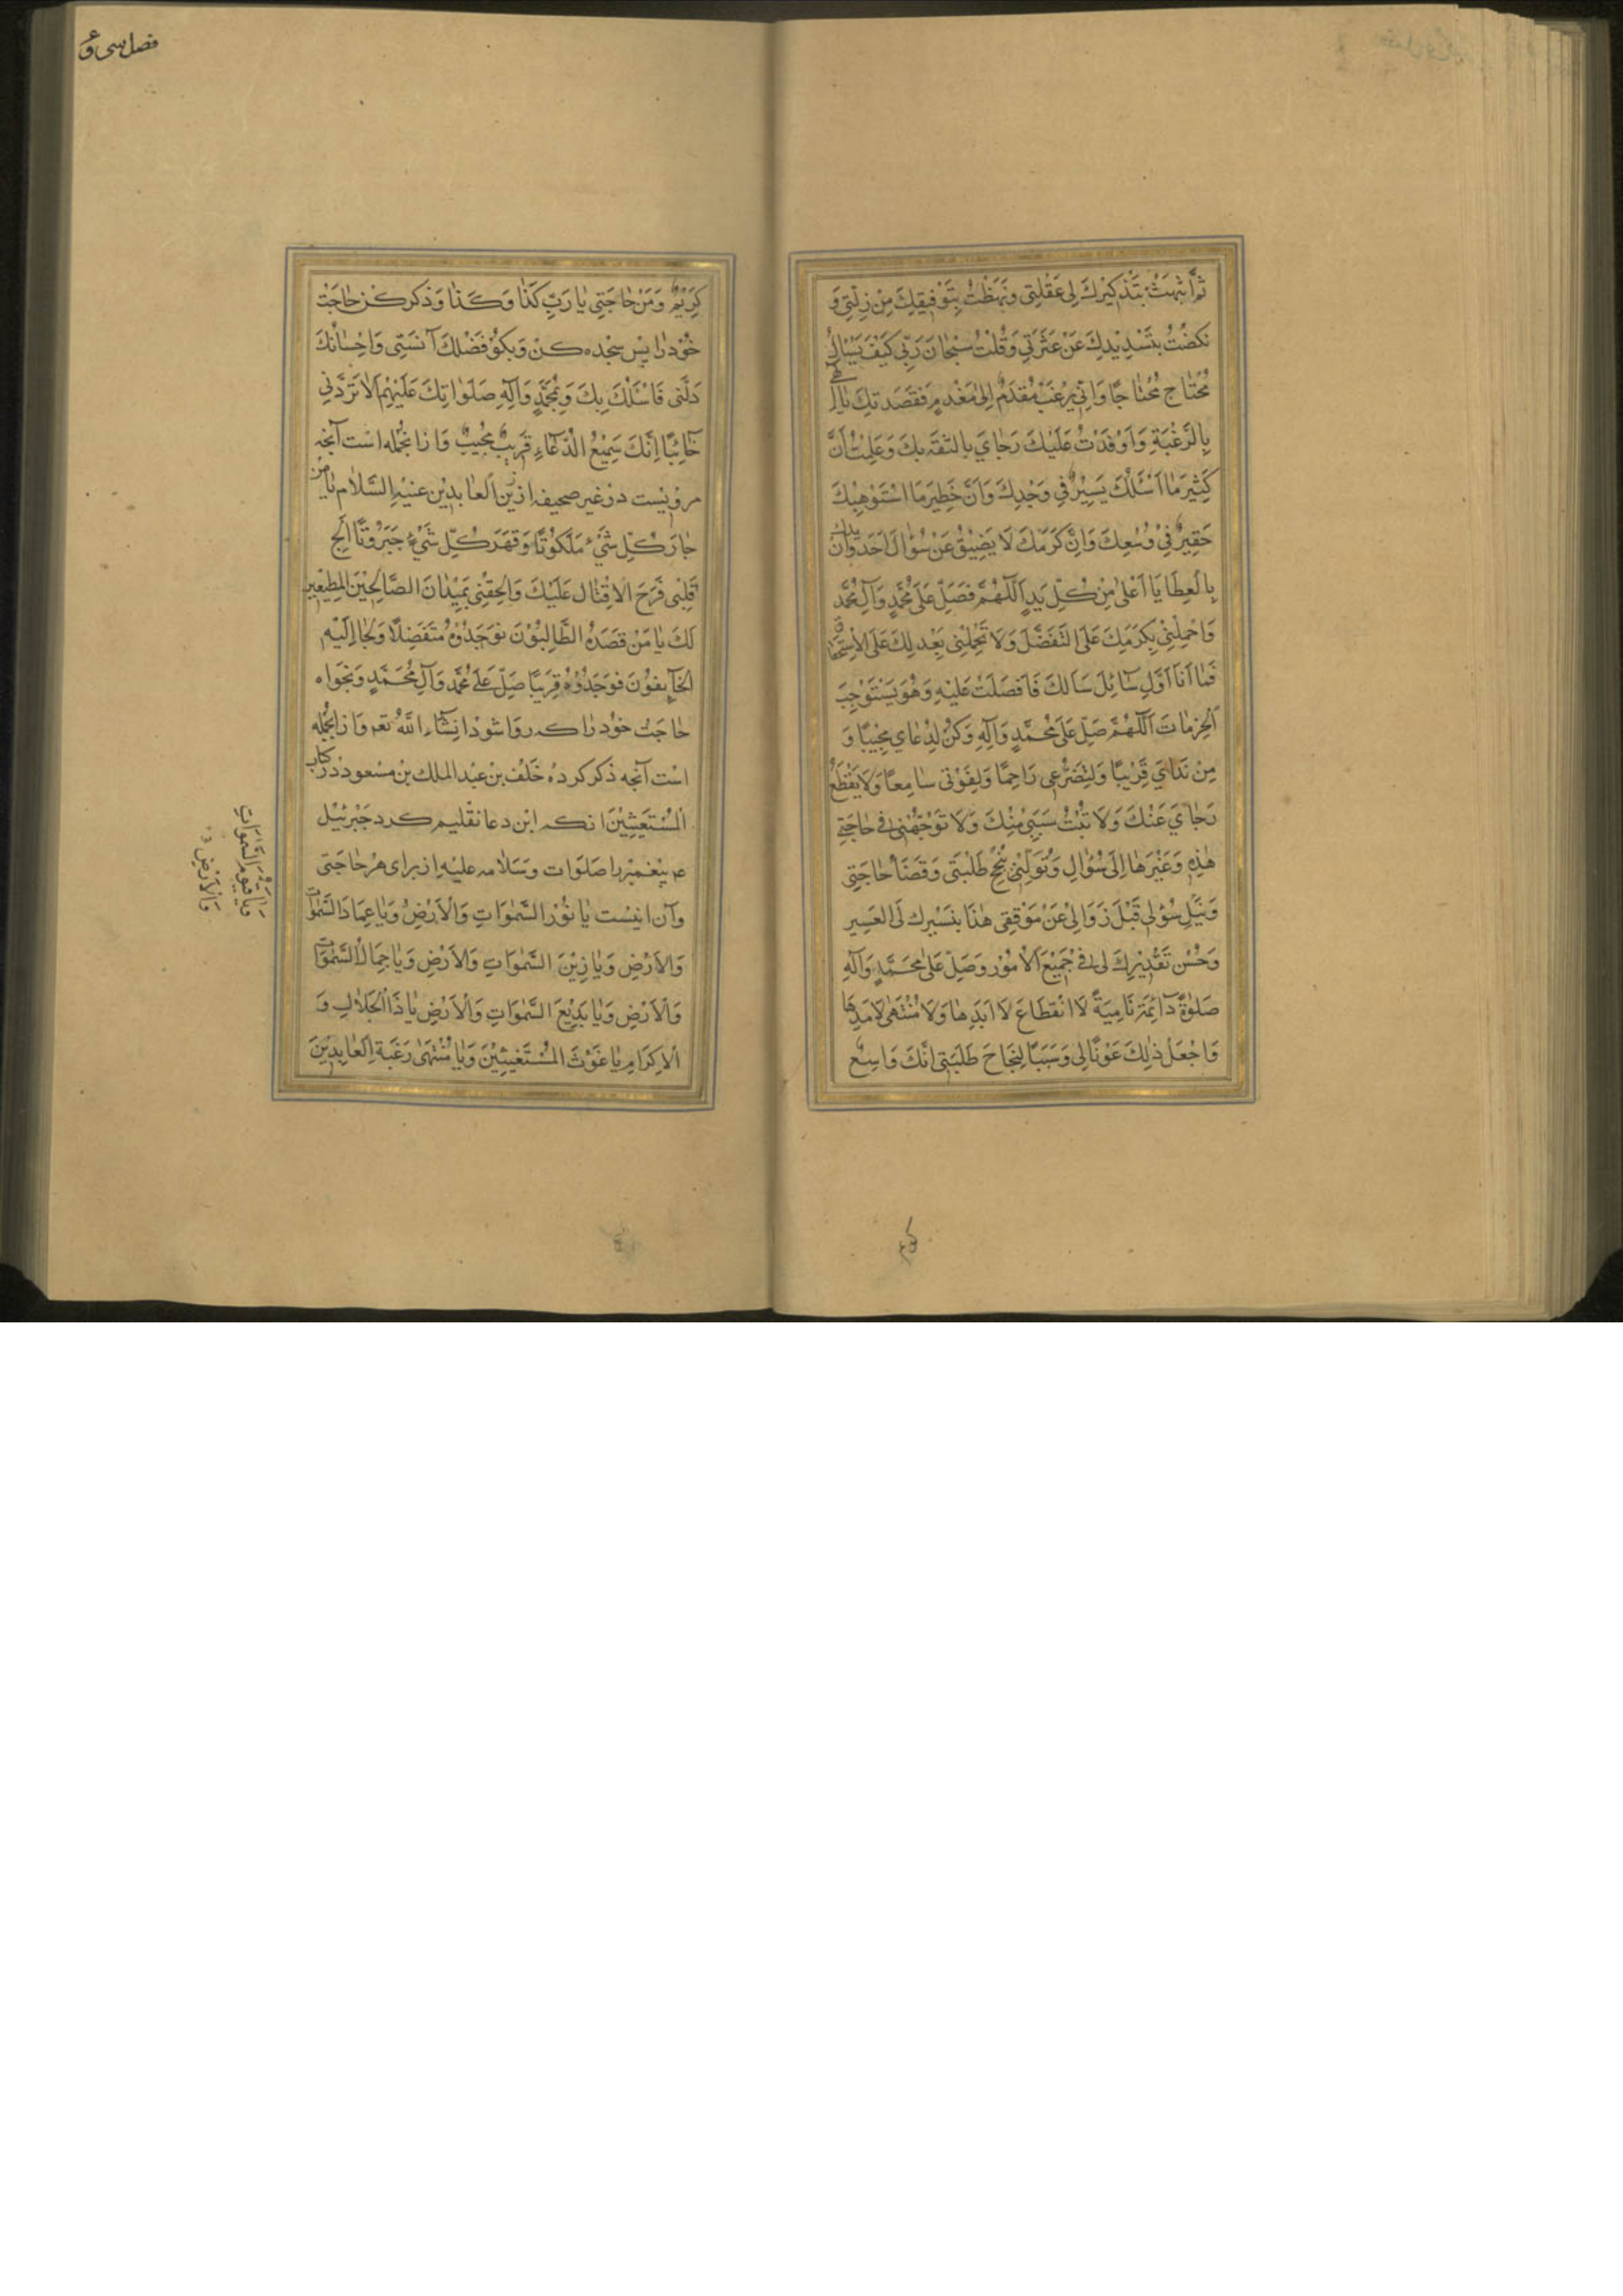 ثُمَّ انْتَبَهْتُ بِتَذْكِيْرِكَ لِي عَقْلَتِي وَنَهَضْتُ بِتَوْفِيقِكَ مِنْ زِلَّتِي وَ
نَكَصْتُ بِتَسْدِيْدِكَ عَنْ عَثْرَتِي وَقُلْتُ سُبْحَانَ رَبِّي كَيْفَ يَسْئَالُ
مُحْتَاج مُحْتَاجًا وَاَنّٰي يَرْغَبُ مُقْدِمٌ اِلٰى مُعْدِمٍ فَقَصَدتِكَ يَا اِلٰهي
بِالرَّغْبَةِ وَاَوْفَدْتُ عَلَيْكَ رَجَايَ بِالثِّقَةِ بِكَ وَعَلِمْتُ اَنَّ
كَثِيْرَ مَا اَسْئَلُكَ يَسِيْرٌ فِي وَجْدِكَ وَاَنَّ خَطِيرَ مَا اسْتَوْهِبُكَ
حَقِيْرٌ فِيْ وُسْعِكَ وَاِنَّ كَرَمَكَ لَا يَضِيْقُ عَنْ سُؤَالَ اَحَدٍ وَاَنَّ يداك
بِالْعَطَايَا اَعْلٰى مِنْ كُلِّ يَدٍ اَللّٰهُمَّ فَصَلِّ عَلٰى مُحَمَّدٍ وَآلِ مُحَمَّد
وَاحْمِلْنِيْ بِكَرَمِكَ عَلَى التَّفَضُّلِ وَلَا تَحْمِلْنِي بِعَدْلِكَ عَلَى الْاِسْتِحْقَاق
فَمَا اَنَا اَوَّلِ سَائِلَ سَالَكَ فَاَفْضَلْتَ عَلَيْهِ وَهُوَ يَسْتَوْجِبَ
اَلْحِرْمَانَ اَللّٰهُمَّ صَلِّ عَلٰى مُحَمَّدٍ وَآلِهِ وَكُنْ لِدُعَايِ مُجِيْبًا وَ
مِنْ نَدَايَ قَرِيْبًا وَلِتَضَرُّعِي رَاحِمًا وَلِصَوْتِي سَامِعًا وَلَا يَقْطَعْ
رَجَايَ عَنْكَ وَلَا تَبُتَّ سَبَبِيْ مِنْكَ وَلَا تُوَجِّهْنِي فِي حَاجَتِي
هٰذِهِ وَغَيْرِهَا اِلَى سُؤَالِ وَتَوَلَّنِيْ بِنُجْحِ طَلِبَتِي وَقَضَاءِ حَاجَتِي
وَنَيْلِ سُؤْلِي قَبْلَ زَوَالِيْ عَنْ مَوْقِفِي هٰذَا بِتَيْسِيْرِكَ لَى الْعَسِيرِ
وَحُسْنِ تَقْدِيْرِكَ لِي فِي جَمِيْعَ الْاُمُوْرِ وَصَلِّ عَلٰى مُحَمَّدٍ وَآلِهِ
صَلٰوةً دَائِمَةً نَامِيَةً لَا انْقِطَاعَ لِاَبَدِهَا وَلَا مُنْتَهٰى لِاَمَدِهَا
وَاجْعَلْ ذٰلِكَ عَوْنًا لِي وَسَبَبًا لِنَجَاحِ طَلِبَتِي اِنَّكَ وَاسِعٌ
فصل سی و
كَرِيْمٌ وَمِنْ حَاجَتِي يَا رَبِّ كَذَا وَكَذَا وَذكر كن حَاجَت
خود را پس سجده كن وَبكو فَضْلُكَ آنَسَنِي وَاِحْسَانُكَ
دَلَّنِي فَاَسْئَلُكَ بِكَ وَبِمُحَمَّدٍ وَآلِهِ صَلَوَاتِكَ عَلَيْهِمْ اَلَّا تَرُدَّنِي
خَائِبًا اِنَّكَ سَمِيْعُ الدُّعَاءِ قَرِيبٌ مُجِيبٌ وَازانجمله است آنچه
مرویست در غیر صحیفه از زین العابدین علیه السلام یا من
حَازَ كُلِّ شَيْءٍ مَلَكُوتًا وَقَهَرَ كُلِّ شَيْءٍ جَبَرُوتًا اَلِجْ
قَلْبِي فَرَحَ الْاِقْبَال عَلَيْكَ وَالْحِقْنِي بِمَيْدَانَ الصَّالِحِيْنَ الْمُطِيْعِينَ
لَكَ يَا مَنْ قَصَدَهُ الطَّالِبُوْنَ فَوَجَدُوْهُ مُتَفَضِّلًا وَلَجَا اِلَيْهِ
الْخَائِفُونَ فَوَجَدُوْهُ قَرِيبًا صَلِّ عَلٰى مُحَمَّدٍ وَآلِ مُحَمَّدٍ وبخواه
حاجت خود را که روا شود انشاء اللّٰه تعم وازانجمله
است آنچه ذکر کرده خَلَف بن عبد الملك بن مسعود در کتاب
الْمُسْتَغِيثِيْنَ انكه این دعا تعلیم كرد جبرئیل
عم پیغمبر را صلوات وسلامه علیه از برای هر حاجتی
وآن اینست يَا نُوْرَ السَّمٰوَاتِ وَالْاَرْضِ وَيَا عِمَادَ السَّمٰوَاتِ
وَالْاَرْضِ وَيَا زِيْنَ السَّمٰوَاتِ وَالْاَرْضِ وَيَا جَمَالَ السَّمٰوَاتِ
وَالْاَرْضِ وَيَا بَدِيْعَ السَّمٰوَاتِ وَالْاَرْضِ يَا ذَا الْجَلَالِ وَ
الْاِكْرَامِ يَا غَوْثَ الْمُسْتَغِيْثِيْنَ وَيَا مُنْتَهٰى رَغْبَةِ الْعَابِدِيْنَ
وَيَا قَيُّومَ السَّمٰوَاتِ
وَالْاَرْضِ